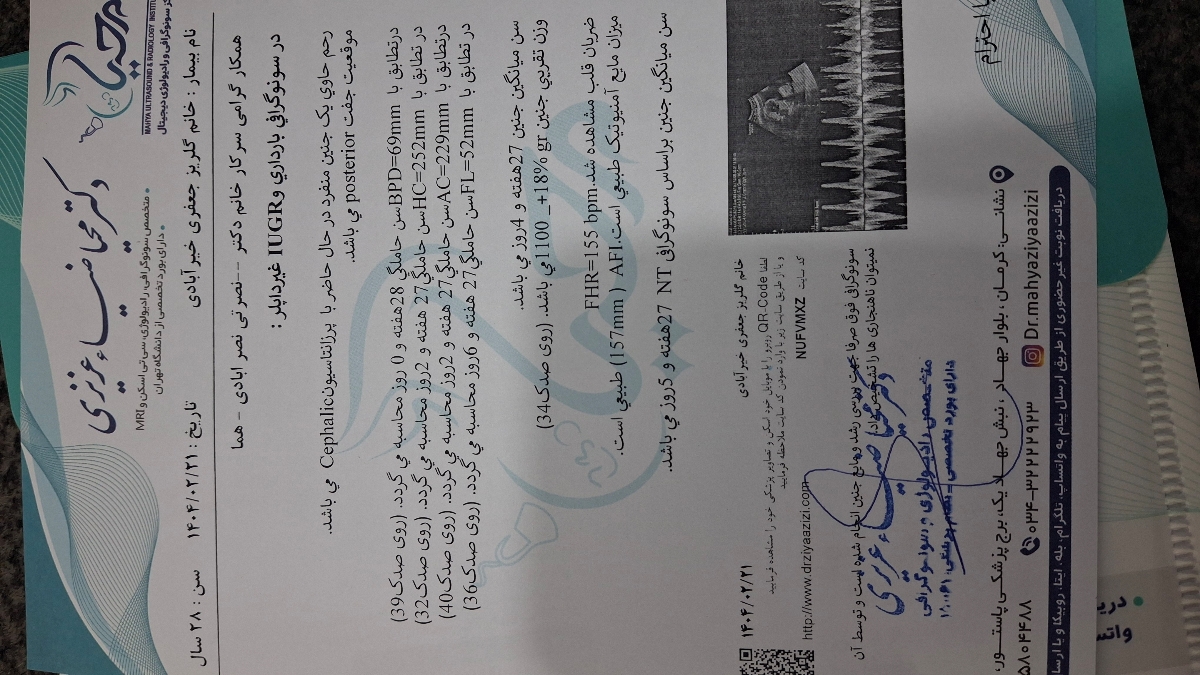 مرکز سونوگرافی و رادیولوژی دیجیتال
MAHYA ULTRASOUND & RADIOLOGY INSTITUTE
دکتر محیا ضیاء عزیزی
• متخصص سونوگرافی، رادیولوژی، سی تی اسکن و MRI
• دارای بورد تخصصی از دانشگاه تهران
نام بیمار : خانم گلریز جعفری خیر آبادی
تاریخ : ۱۴۰۴/۰۲/۲۱
سن : ۲۸ سال
همکار گرامی سرکار خانم دکتر -- نصرتی نصر ابادی - هما
در سونوگرافی بارداری و IUGR غیرداپلر :
رحم حاوی یک جنین منفرد در حال حاضر با پرزانتاسیون Cephalic می باشد.
موقعیت جفت posterior می باشد.
درتطابق با BPD=69mm سن حاملگی 28هفته و 0 روز محاسبه می گردد. (روی صدک39)
در تطابق با HC=252mm سن حاملگی 27 هفته و 2روز محاسبه می گردد. (روی صدک32)
درتطابق با AC=229mm سن حاملگی 27 هفته و 2روز محاسبه می گردد. (روی صدک40)
در تطابق با FL=52mm سن حاملگی 27 هفته و 6روز محاسبه می گردد. (روی صدک36)
سن میانگین جنین 27هفته و 4روز می باشد.
وزن تقریبی جنین 1100 _+18% gr می باشد. (روی صدک34)
ضربان قلب مشاهده شد. FHR=155 bpm
میزان مایع آمنیوتیک طبیعی است. AFI ( 157mm) طبیعی است.
سن میانگین جنین براساس سونوگرافی NT 27هفته و 5روز می باشد.
با احترام
خانم گلریز جعفری خیر آبادی
۱۴۰۴/۰۲/۲۱
لطفا QR-Code روبرو را با موبایل خود اسکن و تصاویر پزشکی خود را مشاهده فرمایید
و یا از طریق سایت زیر با وارد نمودن کد سایت ملاحظه فرمایید
کد سایت NUFVMXZ
http://www.drziyaazizi.com
سونوگرافی فوق صرفا جهت بررسی رشد و مایع جنین انجام شده است و توسط آن
نمیتوان ناهنجاری ها را تشخیص داد
دکتر محیا ضیاء عزیزی
متخصص رادیولوژی و سونوگرافی
دارای بورد تخصصی - نظام پزشکی: ۱۸۰۰۶۱
نشانی: کرمان ، بلوار جهاد ، نبش جهاد یک، برج پزشکی پاستور،
Dr.mahyaziyaazizi
۰۳۴-۳۲۲۲۲۹۲۳
۵۸۰۴۴۸۸
دریافت نوبت غیرحضوری از طریق ارسال پیام به واتساپ، تلگرام، بله، ایتا، روبیکا و یا ارسا
• دری
واتس